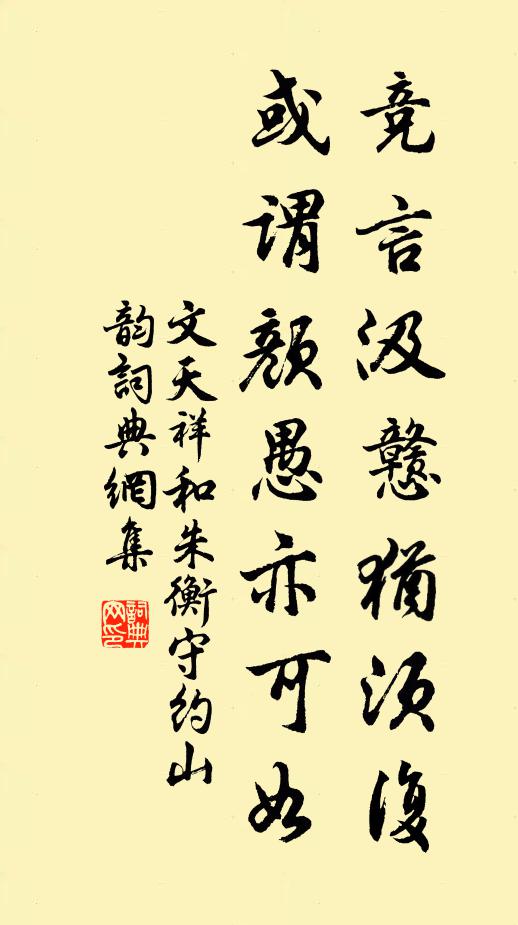 竞言汲戆猶須復
或谓顏愚亦可如
文天祥和朱衡守約山
韵詞典網集
詞典網印